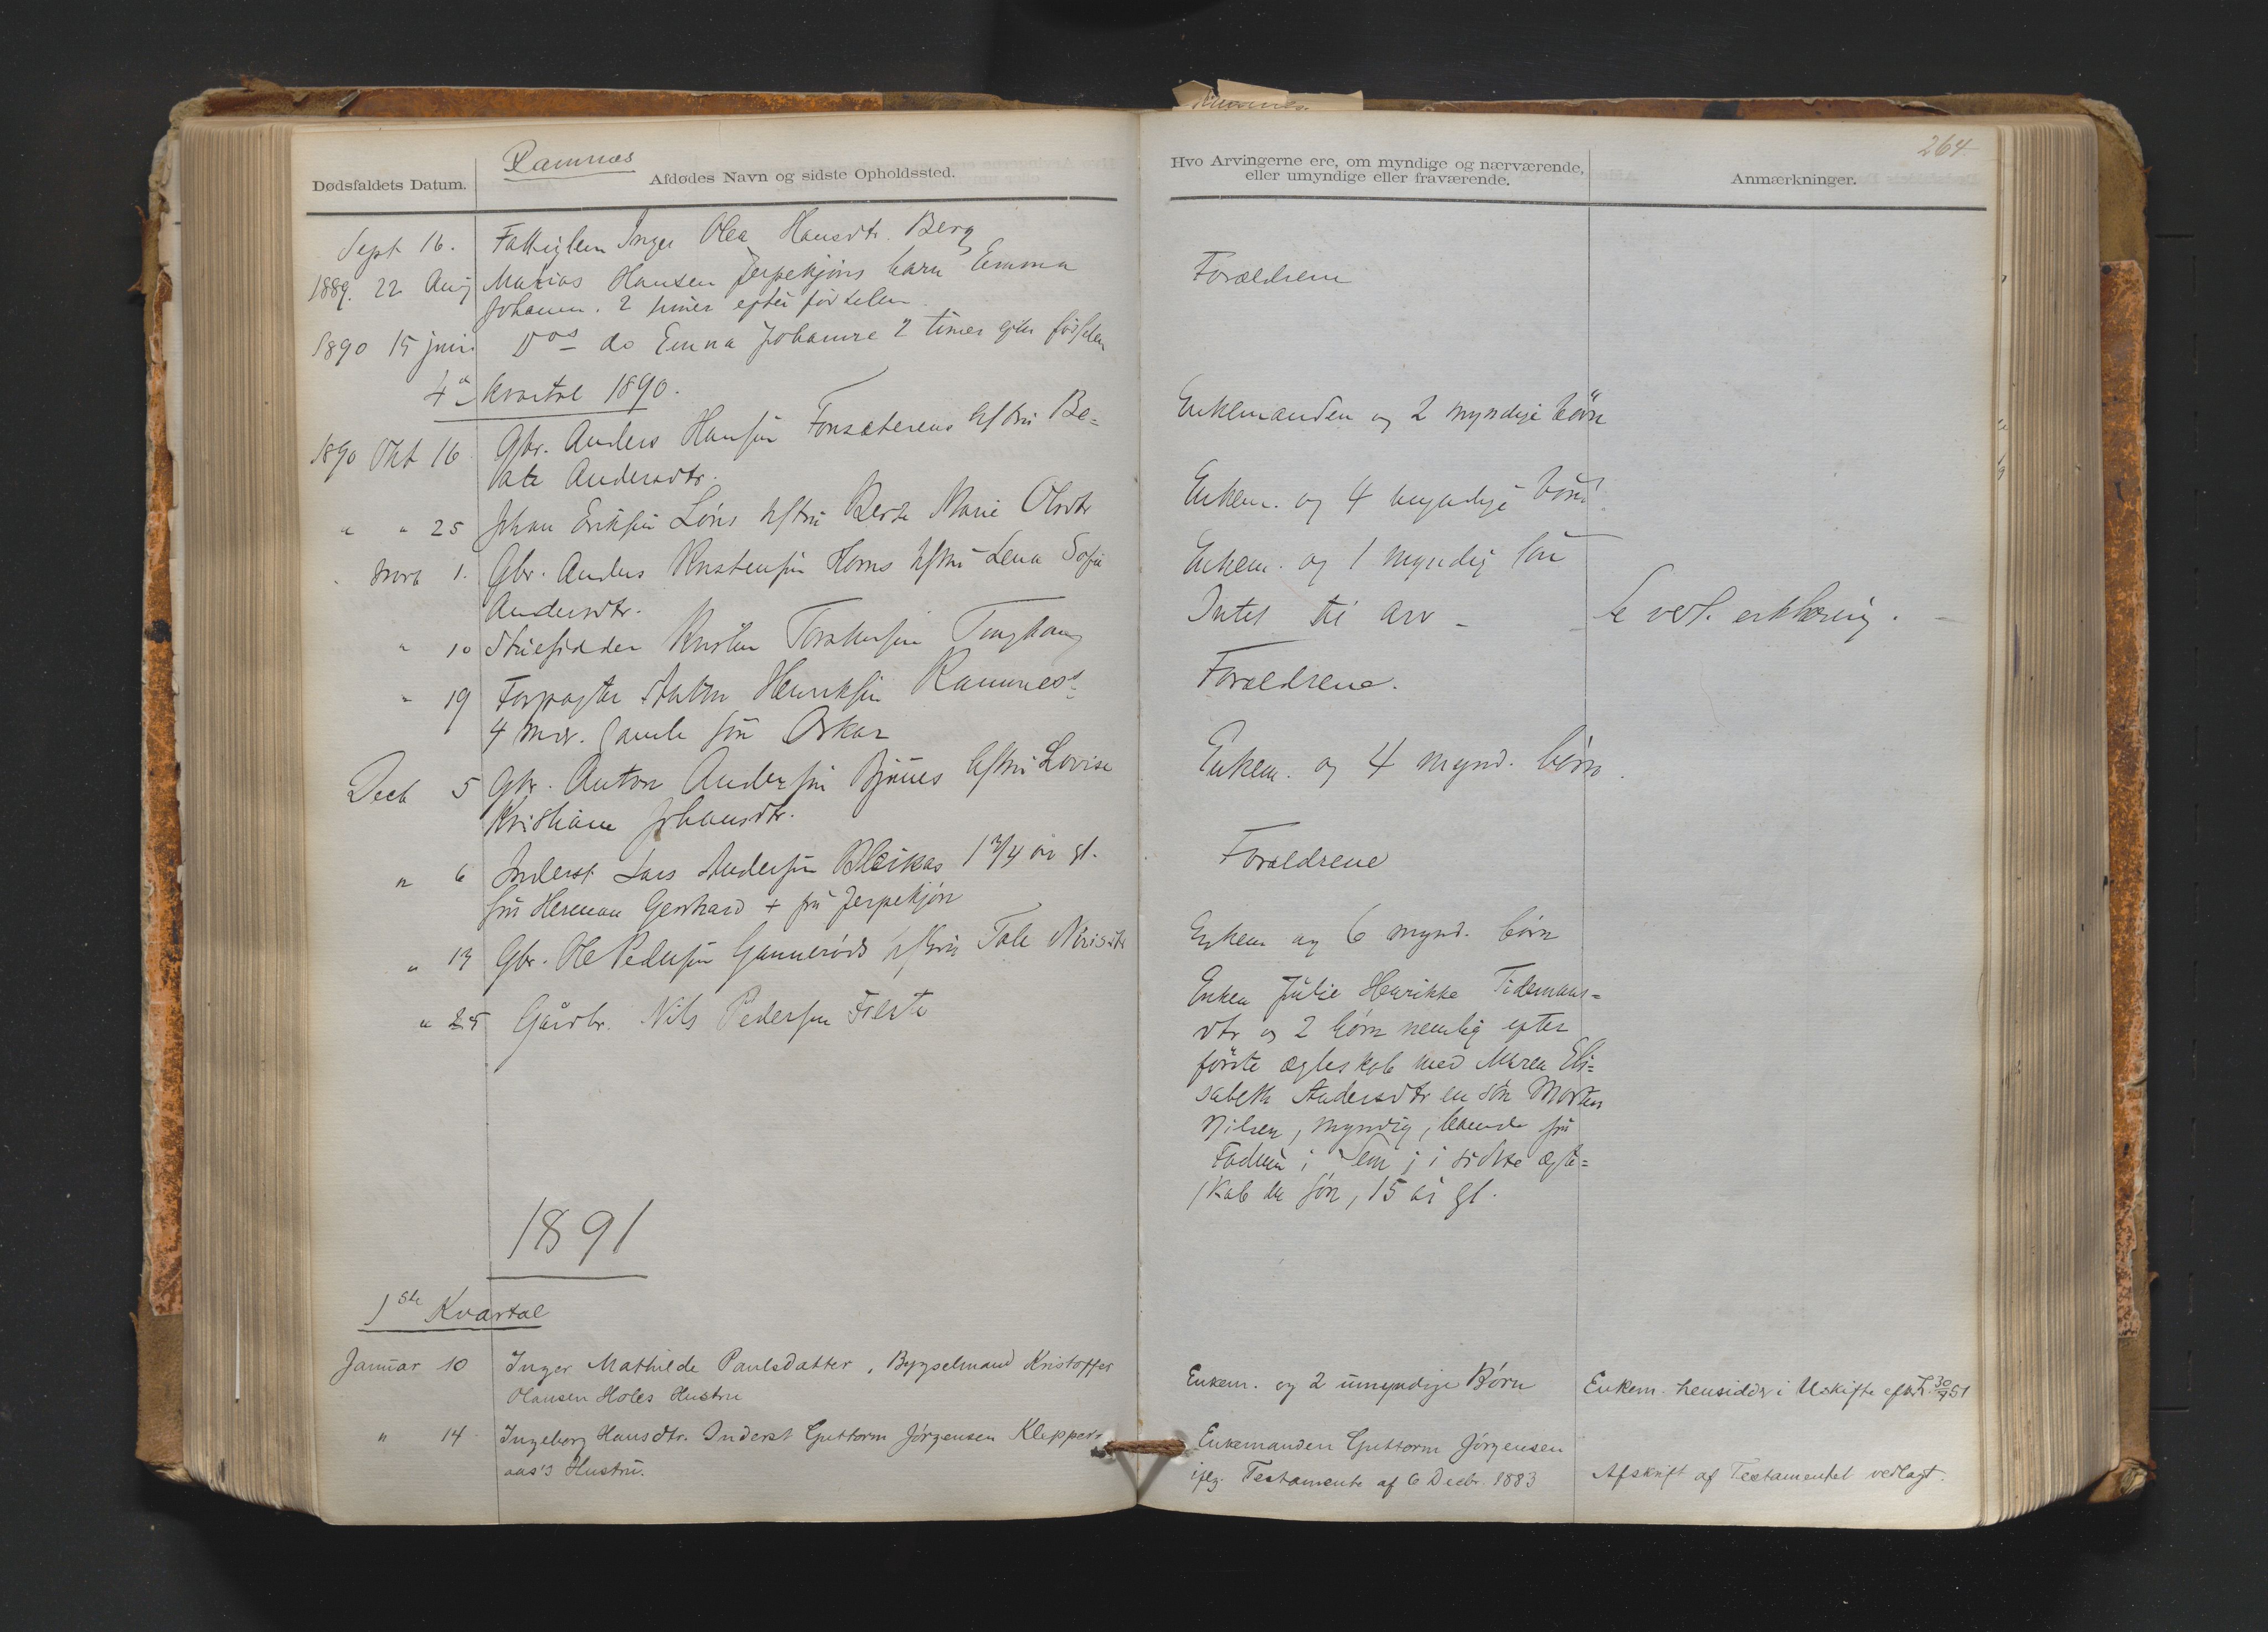 Ramnæs
Dødsfaldets Datum.
Afdødes Navn og sidste Opholdssted.
Sept 16. Fattiglem Inger Olea Hansdtr. Berg
1889. 22 Aug Matias Hansen Jerpekjøns barn Emma
Johanne. 2 timer efter fødselen.
1890 15 juni Dos do Emna Johanne 2 timer efter fødselen
4de Kvartal 1890.
1890 Okt 16 Gbr. Anders Hansen Fonsæterens hustru Be-
Andersdtr.
" " 25 Johan Eriksen Löns hstru Berte Marie Olsdtr
" Novb 1. Gbr. Anders Kristensen Horns hstru Lena Sofie
Andersdtr.
" 10 Huusfidder
" 19 Forpagter Anton Henriksen Ramnes's
4 mdr. gamle søn Oskar
Decb 5 Gbr. Anton Andersen hstru Lovise
Kristiane Johansdtr.
" 6 Inderst Lars Andersen Bleikas 1 3/4 år gl.
søn Herman Gerhard + på Jerpekjøn
" 13 Gbr. Ole Pedersen Gunnerøds hstru Tale
" 25 Gårdbr. Nils Pedersen
1891
1ste Kvartal
Januar 10 Inger Mathilde Paulsdatter, Bygselmand Kristoffer
Olausen Holes Hustru
" 14 Ingeborg Hansdtr. Inderst Guttorm Jørgensen Klepper-
aas's Hustru.
264
Hvo Arvingerne ere, om myndige og nærværende,
eller umyndige eller fraværende.
Anmærkninger.
Forældrene
Enkemanden og 2 myndige børn
Enkem. og 4 myndige börn.
Enkem. og 1 myndig søn
Intet til arv - Se vedl. erklæring.
Forældrene.
Enkem. og 4 mynd. børn.
Forældrene
Enkem og 6 mynd. børn
Enken Julie Henrikke Tidemans-
dtr og 2 børn nemlig efter
förste ægteskab med Maren Eli-
sabeth Andersdtr en søn Morten
Nilsen, myndig, boende på
i Sem; i sidste ægte-
skab en søn, 15 år gl.
Enkem. og 2 umyndige Børn Enkem. hensidder i Uskifte efter L. 30/7 51
Enkemanden Guttorm Jørgensen
iflg. Testamente af 6 Decbr. 1883 Afskrift af Testamentet vedlagt.